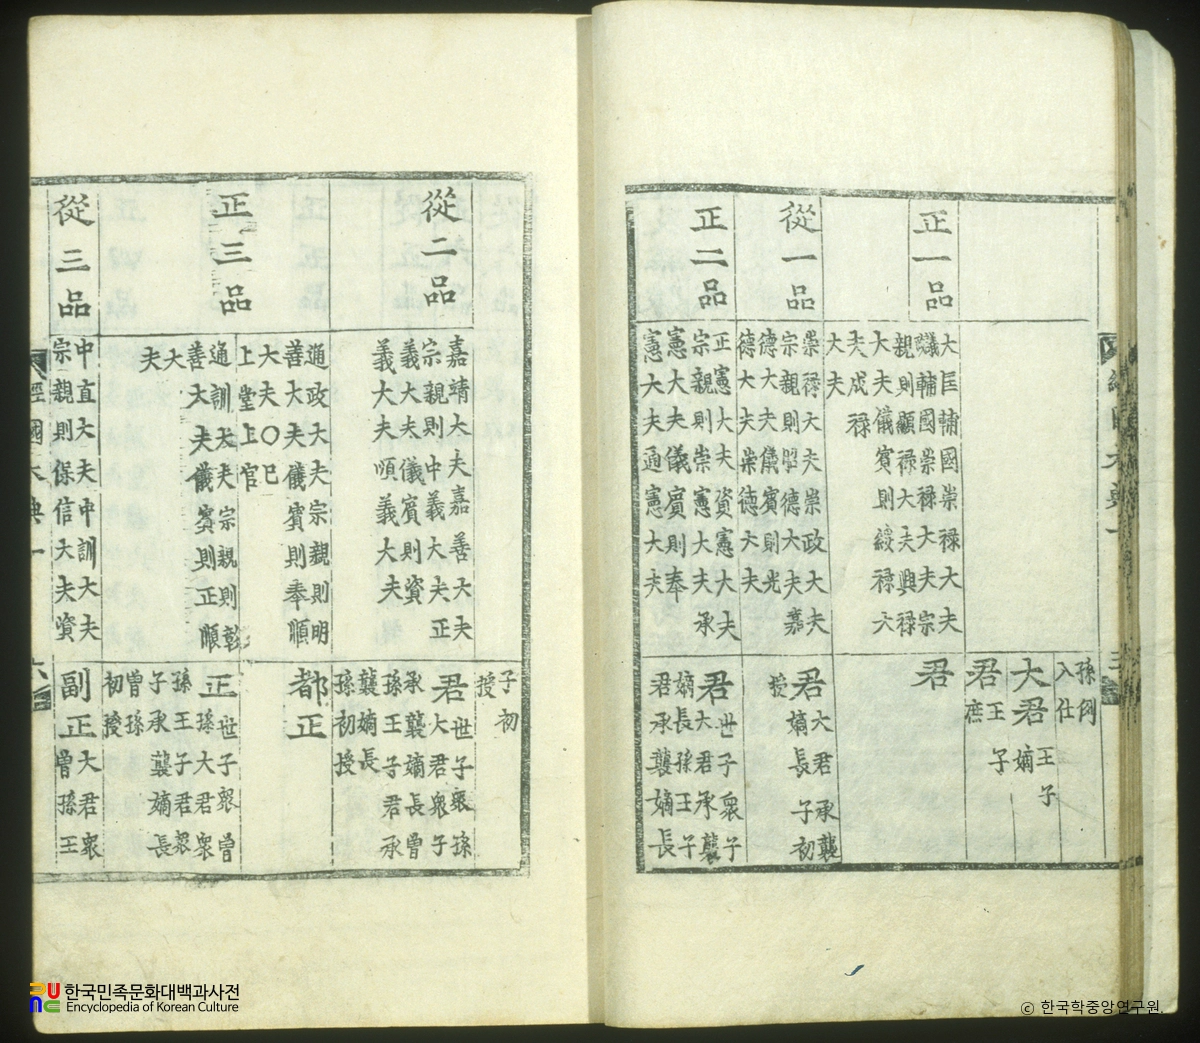 孫例
入仕
大君王子
嫡
君王子
庶
正一品
大匡輔國崇祿大夫
議輔國崇祿大夫宗
親則顯祿大夫興祿
大夫儀賓則綏祿大
夫成祿
大夫
君
從一品
崇祿大夫崇政大夫
宗親則昭德大夫嘉
德大夫儀賓則光
德大夫崇德大夫
君大君承襲
嫡長子初
授
正二品
正憲大夫資憲大夫
宗親則崇憲大夫承
憲大夫儀賓則奉
憲大夫通憲大夫
君世子衆子
大君承襲
嫡長孫王子
君承襲嫡長
子初
授
從二品
嘉靖大夫嘉善大夫
宗親則中義大夫正
義大夫儀賓則資
義大夫順義大夫
君世子衆孫
大君衆子
承襲嫡長曾
孫王子君承
襲嫡長
孫初授
正三品
通政大夫宗親則明
善大夫儀賓則奉順
大夫〇已
上堂上官
通訓大夫宗親則彰
善大夫儀賓則正順
大
夫
都正
正世子衆曾
孫大君衆
孫王子君衆
子承襲嫡長
曾孫
初授
從三品
中直大夫中訓大夫
宗親則保信大夫資
副正大君衆
曾孫王
經國大典一
六
한국민족문화대백과사전
Encyclopedia of Korean Culture
ⓒ 한국학중앙연구원.